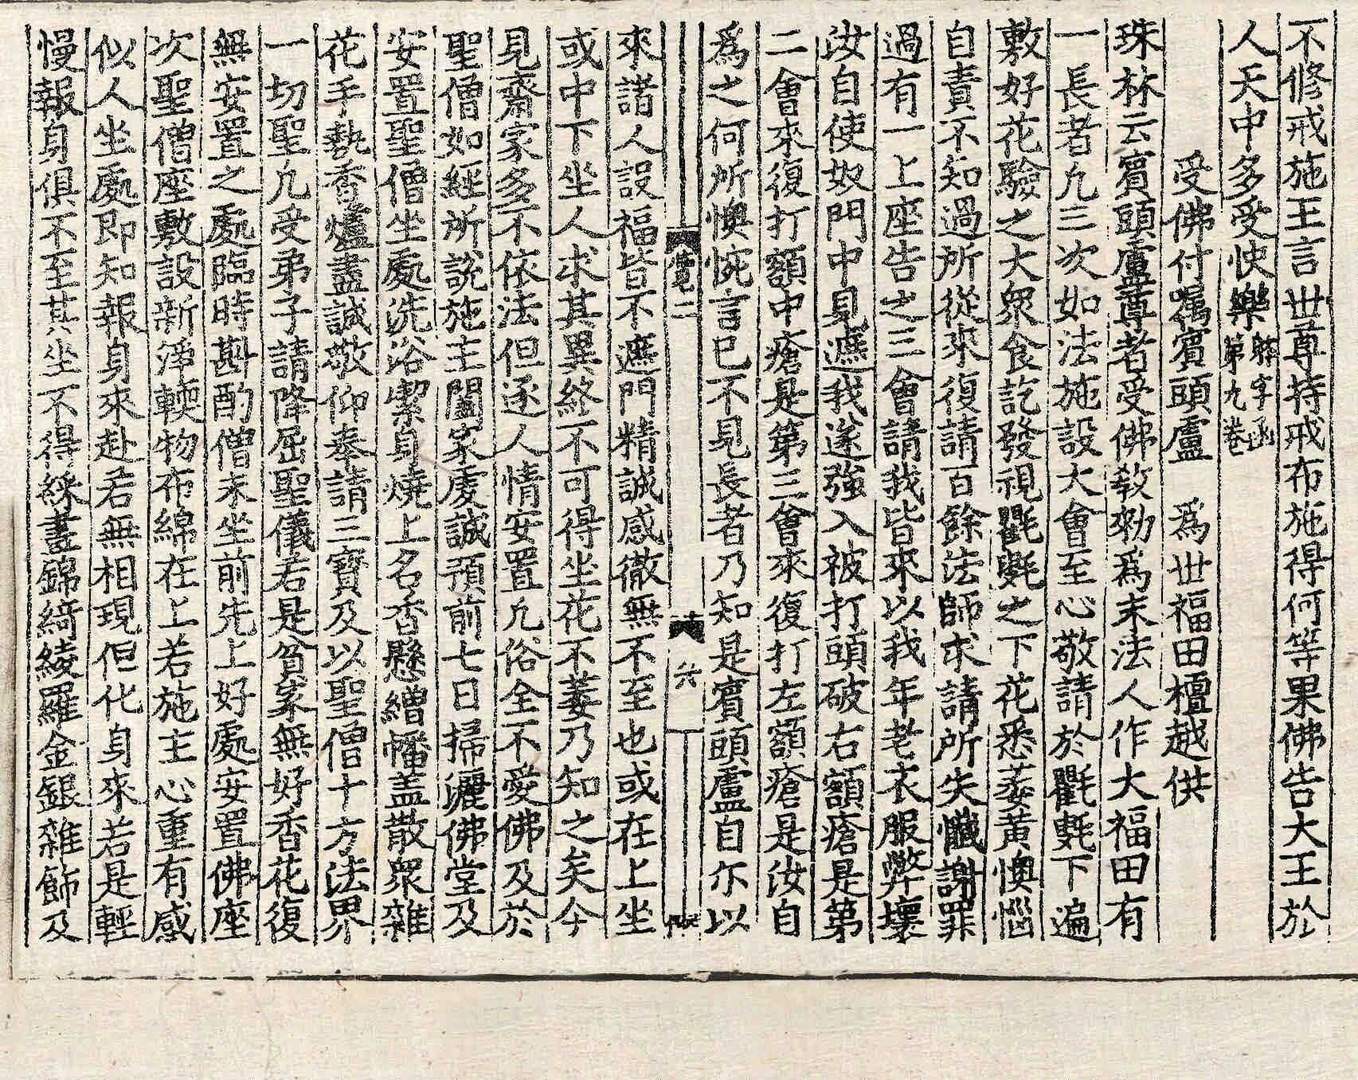 不修戒施王言世尊持戒布施得何等果佛告大王於
人天中多受快樂
第九卷
受佛付囑賓頭盧　爲世福田檀越供
珠林云賓頭盧尊者受佛教勑爲末法人作大福田有
一長者凢三次如法施設大會至心敬請於氍毹下遍
敷好花驗之大衆食訖發視氍毹之下花悉萎黃懊惱
自責不知過所從來復請百餘法師求請所失懺謝罪
過有一上座告之三會請我皆來以我年老衣服弊壞
汝自使奴門中見遮我遂強入被打頭破右額瘡是第
二會來復打額中瘡是第三會來復打左額瘡是汝自
爲之何所懊惋言已不見長者乃知是賓頭盧自尒以
六
來諸人設福皆不遮門精誠感徹無不至也或在上坐
或中下坐人求其異終不可得坐花不萎乃知之矣今
見齋家多不依法但逐人情安置凢俗全不愛佛及於
聖僧如經所說施主闔家虔誠預前七日掃灑佛堂及
安置聖僧坐處洗浴潔身燒上名香懸繒幡盖散衆雜
花手執香爐盡誠敬仰奉請三寶及以聖僧十方法界
一切聖凢受弟子請降屈聖儀若是貧家無好香花復
無安置之處臨時斟酌僧未坐前先上好處安置佛座
次聖僧座敷設新淨輭物布綿在上若施主心重有感
似人坐處即知報身來赴若無相現但化身來若是輕
慢報身俱不至其坐不得綵畫錦綺綾羅金銀雜飾及